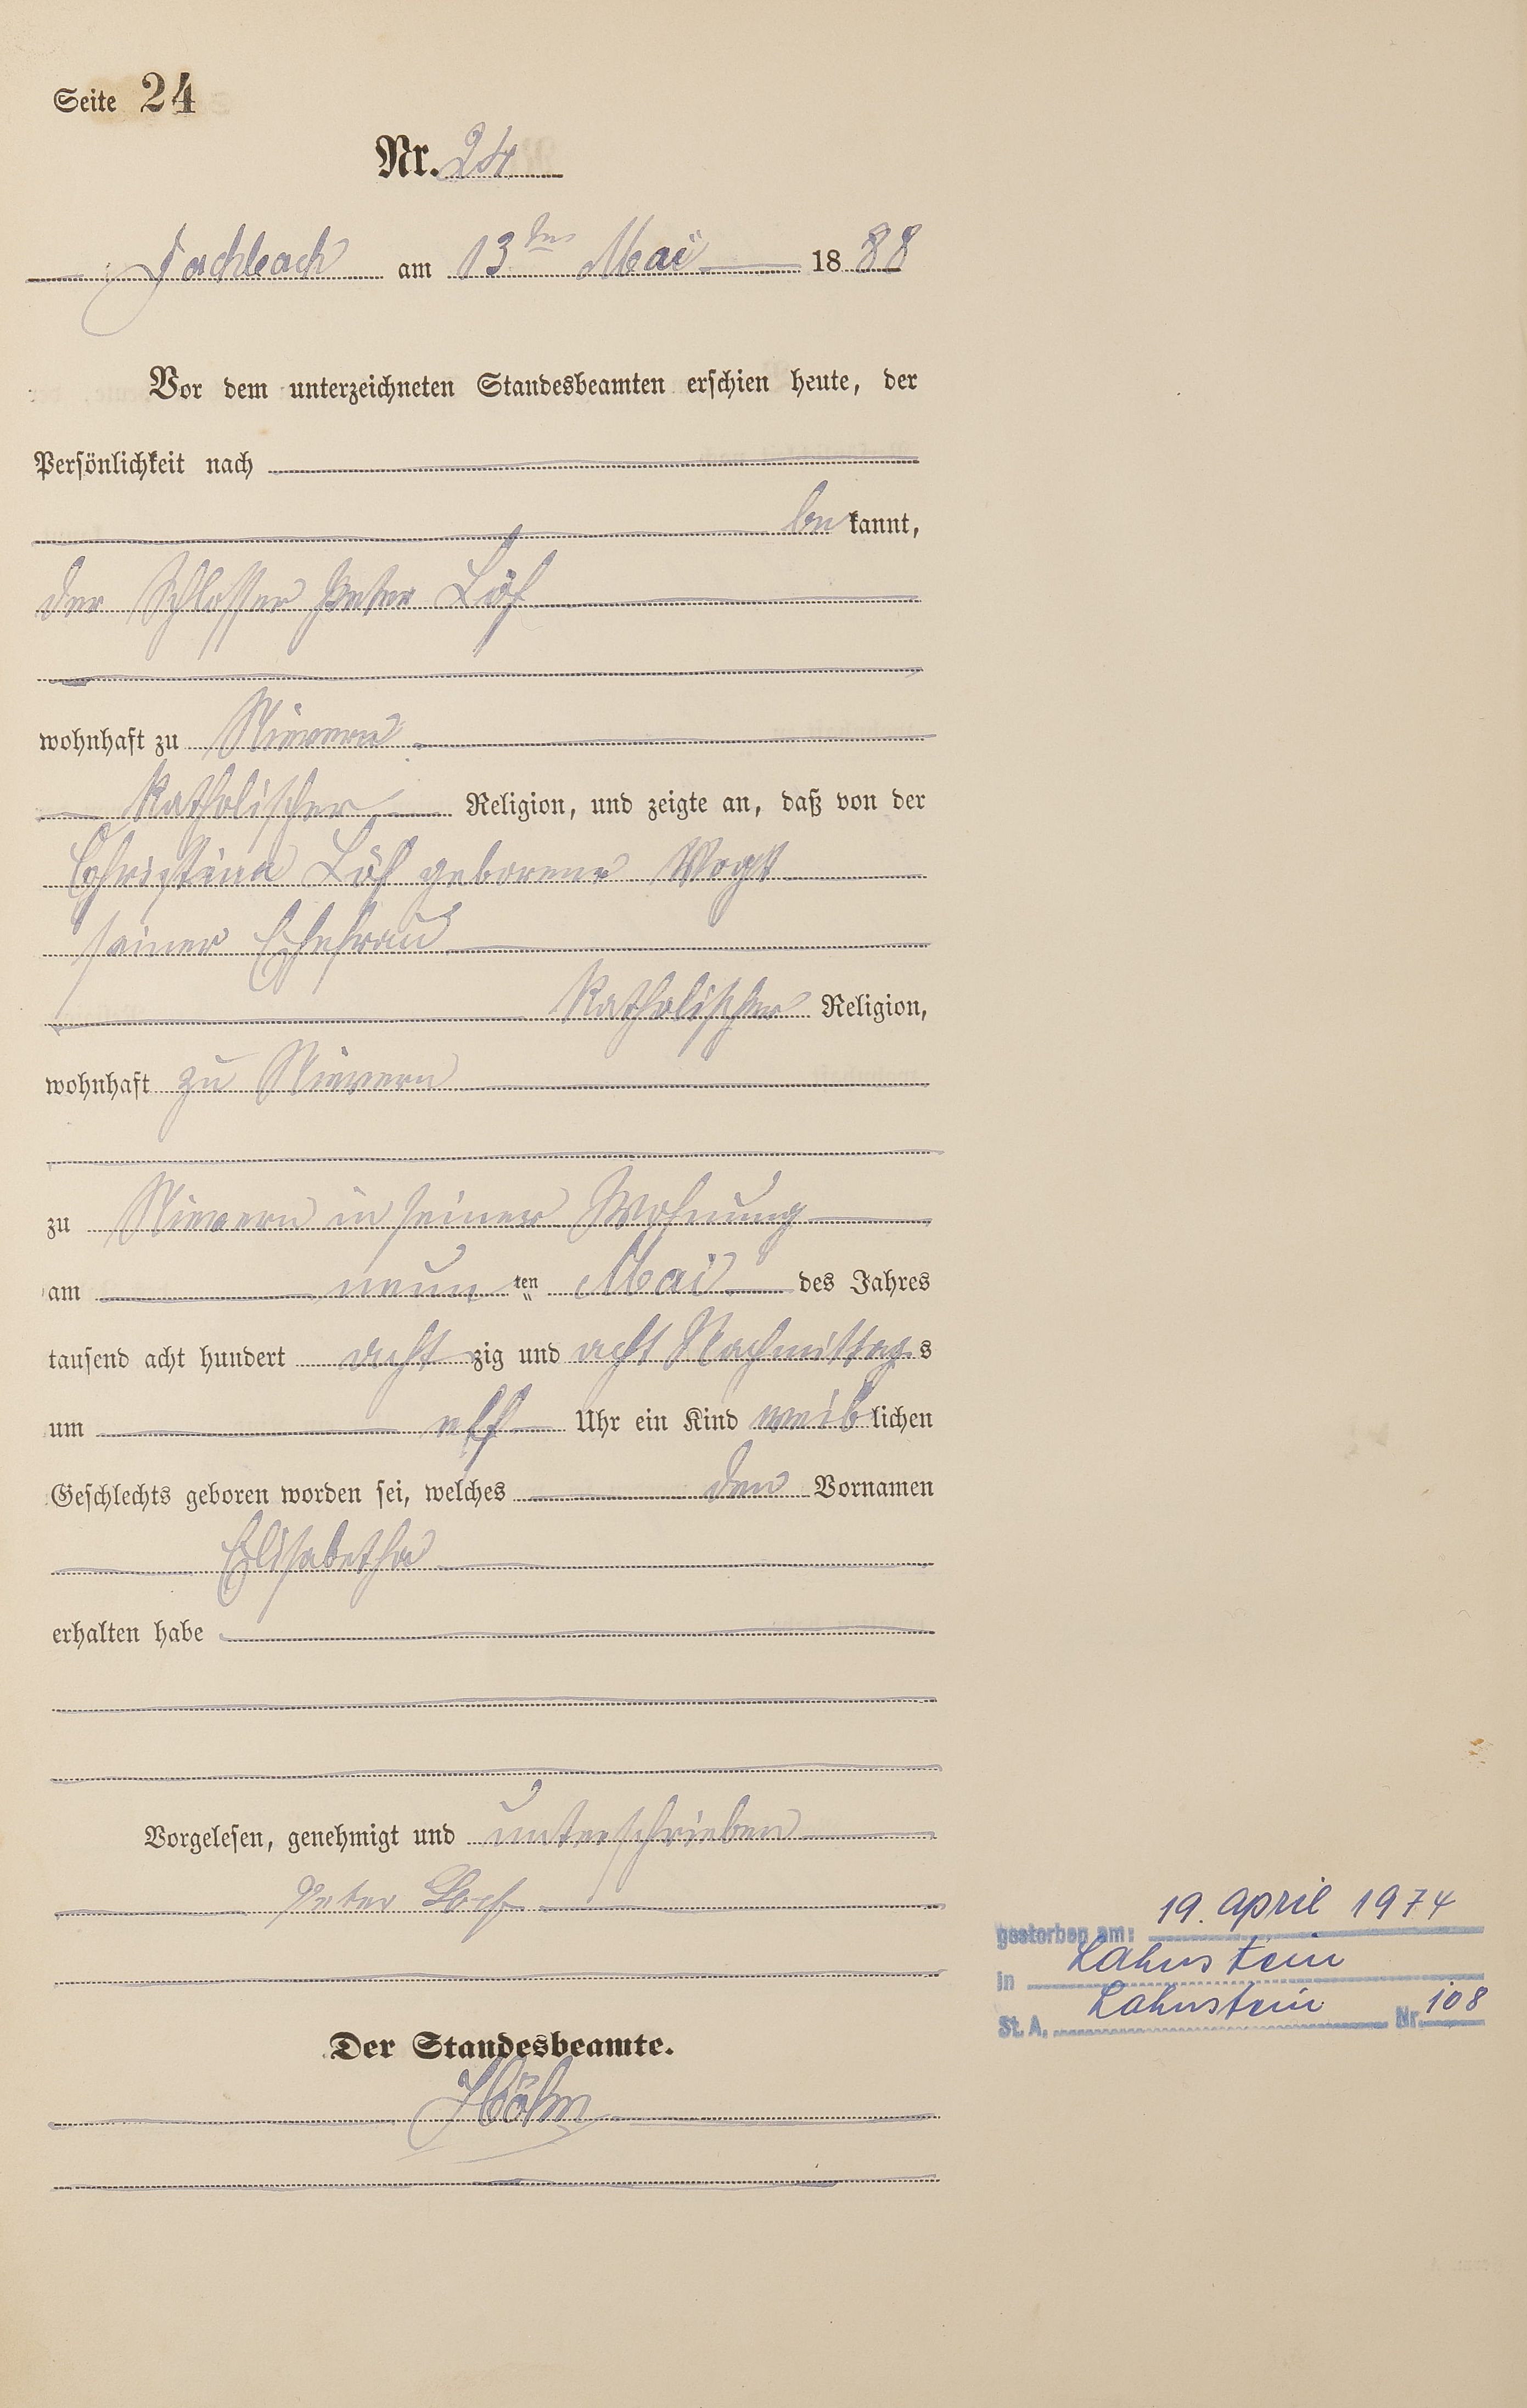 Seite 24
Nr. 24
Fachbach am 13ten Mai 1888
Vor dem unterzeichneten Standesbeamten erschien heute, der
Persönlichkeit nach
bekannt,
der Schlosser Peter Löf
wohnhaft zu Nievern
katholischer Religion, und zeigte an, daß von der
Christina Löf geborene Vogt
seiner Ehefrau
katholischer Religion,
wohnhaft zu Nievern
zu Nievern in seiner Wohnung
am neunten Mai des Jahres
tausend acht hundert achtzig und acht Nachmittags
um elf Uhr ein Kind weiblichen
Geschlechts geboren worden sei, welches den Vornamen
Elisabetha
erhalten habe
Vorgelesen, genehmigt und unterschrieben
Peter
Der Standesbeamte.
gestorben am: 19. April 1974
in Lahnstein
St. A. Lahnstein Nr. 108